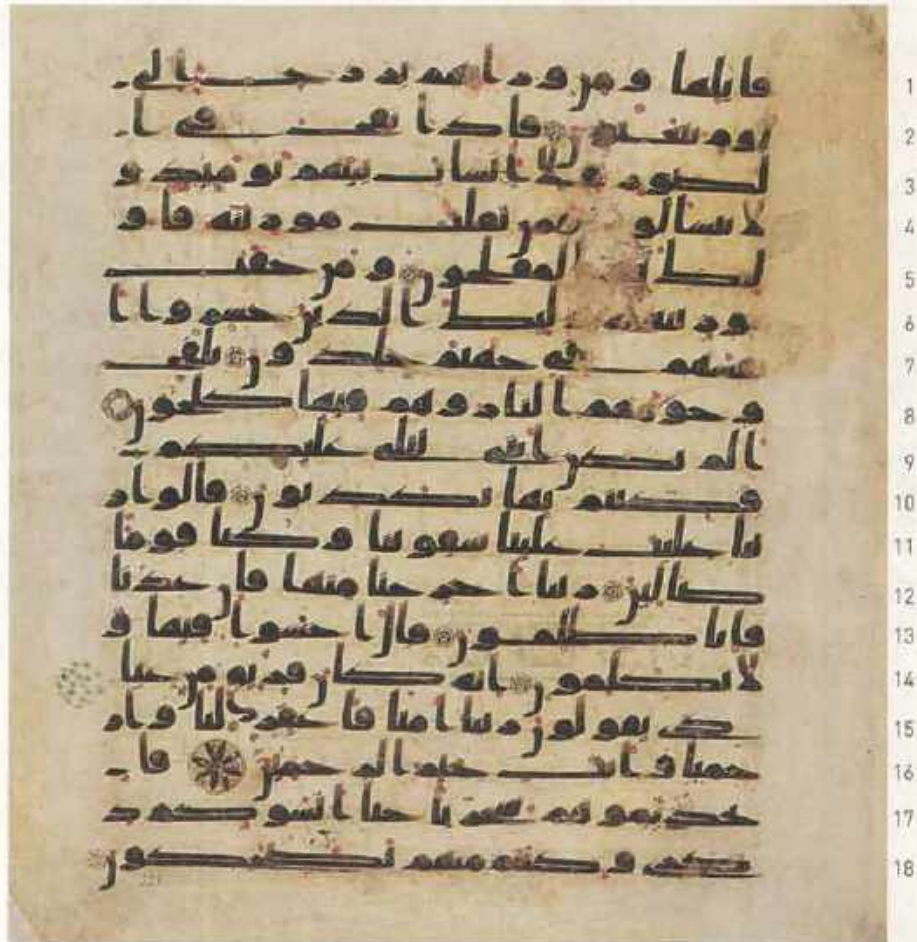 قايلها و من ورايهم برزخ الى 1
يوم يبعثون فاذا نفخ في ا 2
لصور فلا انساب بينهم يومئذ و 3
لا يتسالون فمن ثقلت موزينه فاو 4
ليك المفلحون و من خفت 5
موزينه فاوليك الذين خسروا ا 6
نفسهم في جهنم خلدون تلفح 7
وجوههم النار وهم فيها كلحون 8
الم تكن ايتي تتلى عليكم 9
فكنتم بها تكذبون قالوا ر 10
بنا غلبت علينا شقوتنا وكنا قوما 11
ضالين ربنا اخرجنا منها فان عدنا 12
فانا ظلمون قال اخسوا فيها و 13
لا تكلمون انه كان فريق من عبا 14
دي يقولون ربنا امنا فاغفر لنا وار 15
حمنا و انت خير الرحمين فا 16
تخذتموهم سخريا حتا انسوكم ذ 17
كري وكنتم منهم تضحكون 18